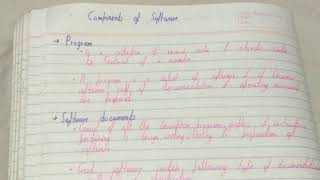 Components of Software
→ Program
→ Is a collection of source code & object code
→ A program is a subset of software & it becomes
software only if documentation & operating manuals
are prepared
→ Software documents
→ Consist of all the description, programs, graphics & instructions
pertaining to design, coding, testing & preparation of
software
→ Good software contains following type of documentation